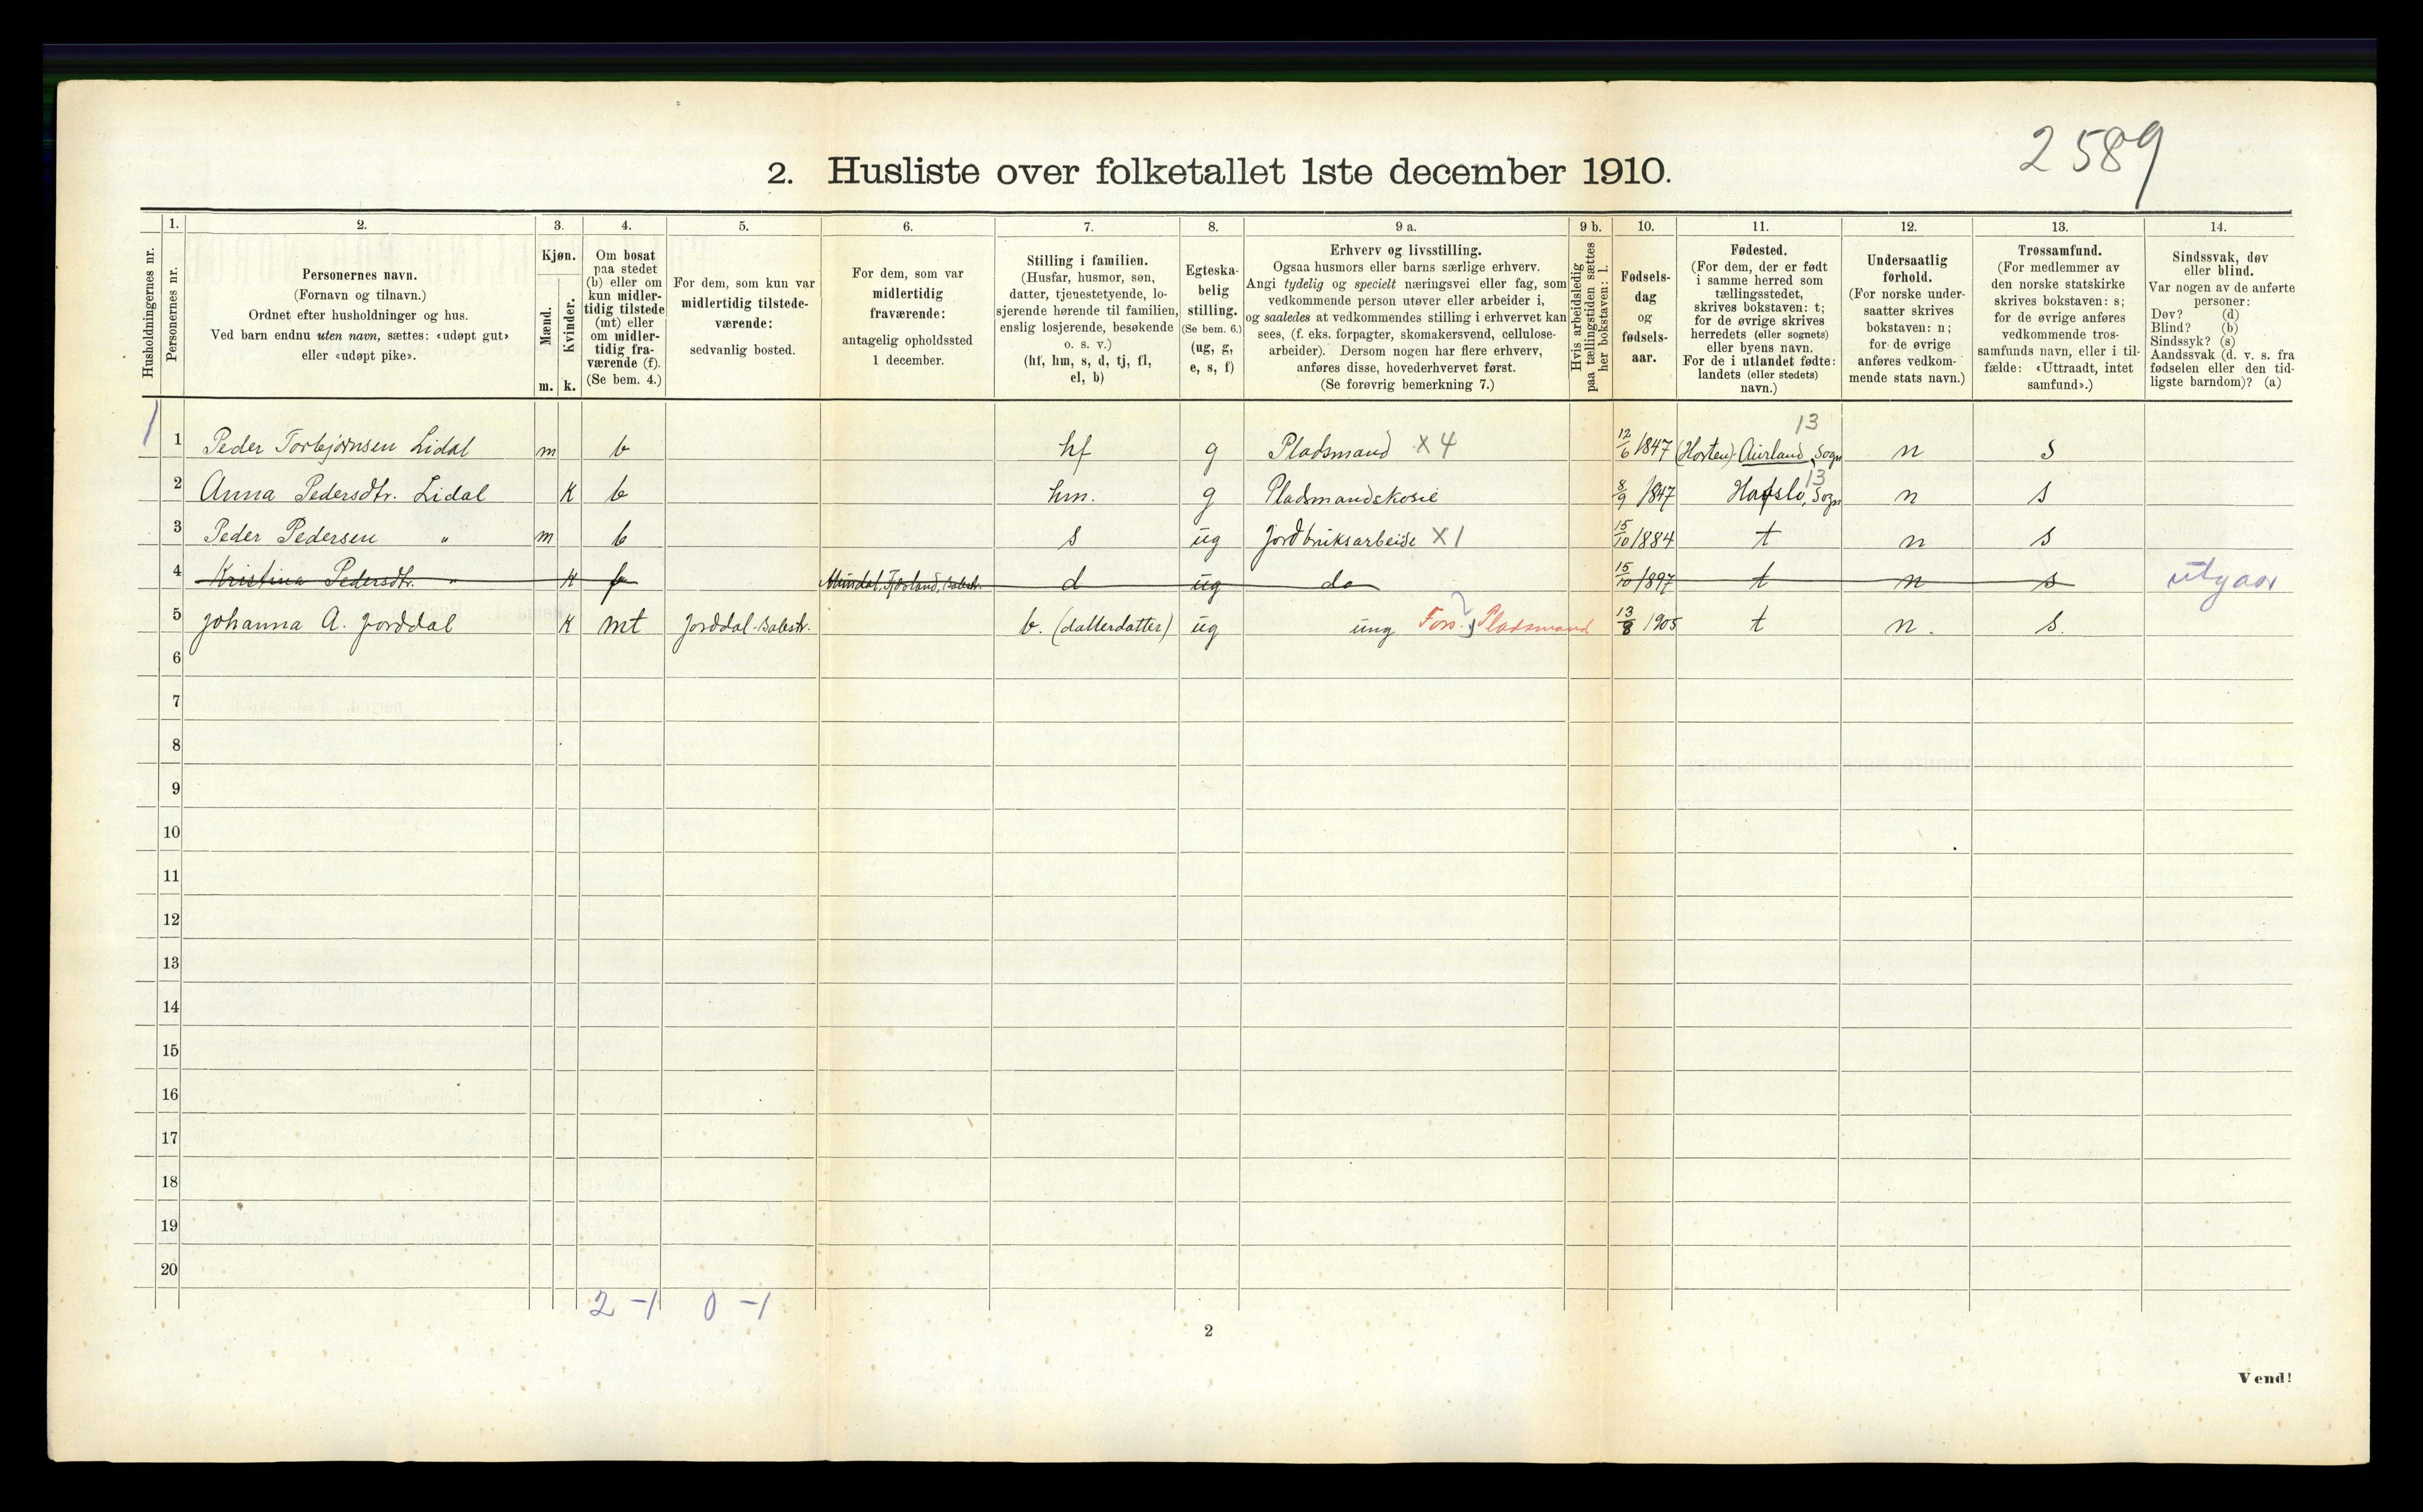 2589
2. Husliste over folketallet 1ste december 1910.
Husholdningernes nr.
1.
Personernes nr.
2.
Personernes navn.
(Fornavn og tilnavn.)
Ordnet efter husholdninger og hus.
Ved barn endnu uten navn, sættes: «udøpt gut»
eller «udøpt pike».
3.
Kjøn.
Mænd.
m.
Kvinder.
k.
4.
Om bosat
paa stedet
(b) eller om
kun midler-
tidig tilstede
(mt) eller
om midler-
tidig fra-
værende (f).
(Se bem. 4.)
5.
For dem, som kun var
midlertidig tilstede-
værende:
sedvanlig bosted.
6.
For dem, som var
midlertidig
fraværende:
antagelig opholdssted
1 december.
7.
Stilling i familien.
(Husfar, husmor, søn,
datter, tjenestetyende, lo-
sjerende hørende til familien,
enslig losjerende, besøkende
o. s. v.)
(hf, hm, s, d, tj, fl,
el, b)
8.
Egteska-
belig
stilling.
(Se bem. 6.)
(ug, g,
e, s, f)
9 a.
Erhverv og livsstilling.
Ogsaa husmors eller barns særlige erhverv.
Angi tydelig og specielt næringsvei eller fag, som
vedkommende person utøver eller arbeider i,
og saaledes at vedkommendes stilling i erhvervet kan
sees, (f. eks. forpagter, skomakersvend, cellulose-
arbeider). Dersom nogen har flere erhverv,
anføres disse, hovederhvervet først.
(Se forøvrig bemerkning 7.)
9 b.
Hvis arbeidsledig
paa tællingstiden sættes
her bokstaven: l.
10.
Fødsels-
dag
og
fødsels-
aar.
11.
Fødested.
(For dem, der er født
i samme herred som
tællingsstedet,
skrives bokstaven: t;
for de øvrige skrives
herredets (eller sognets)
eller byens navn.
For de i utlandet fødte:
landets (eller stedets)
navn.)
12.
Undersaatlig
forhold.
(For norske under-
saatter skrives
bokstaven: n;
for de øvrige
anføres vedkom-
mende stats navn.)
13.
Trossamfund.
(For medlemmer av
den norske statskirke
skrives bokstaven: s;
for de øvrige anføres
vedkommende tros-
samfunds navn, eller i til-
fælde: «Uttraadt, intet
samfund».)
14.
Sindssvak, døv
eller blind.
Var nogen av de anførte
personer:
Døv? (d)
Blind? (b)
Sindssyk? (s)
Aandssvak (d. v. s. fra
fødselen eller den tid-
ligste barndom)? (a)
13
1 1 Peder Torbjørnsen Lidal m b hf g Pladsmand X 4 12/6 1847 (Horten) Aurland, Sogn n s
13
2 Anna Pedersdtr. Lidal K b hm. g Pladsmandskone 8/9 1847 Hafslo, Sogn n s
3 Peder Pedersen " m b s ug jordbruksarbeide X 1 15/10 1884 t n s
4 Kristina Pedersdtr. " K f Mundal, Fjærland, Balestr. d ug do 15/10 1897 t n s utgaar
5 Johanna A. Jorddal K mt Jorddal-Balestr. b. (datterdatter) ug ung Fors. Pladsmand 13/8 1905 t n. s.
6
7
8
9
10
11
12
13
14
15
16
17
18
19
20
2 -1 0 -1
2
Vend!